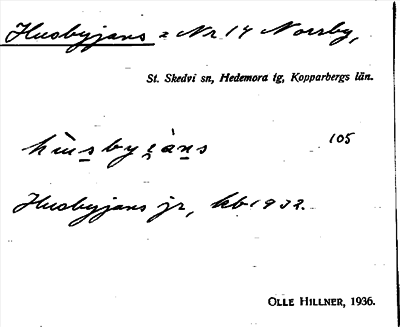 Husbyjans = Nr 14 Norsby,
St. Skedvi sn, Hedemora tg, Kopparbergs län.
hùsbyi̯àns 105
Husbyjans jr, kb 1932.
OLLE HILLNER, 1936.